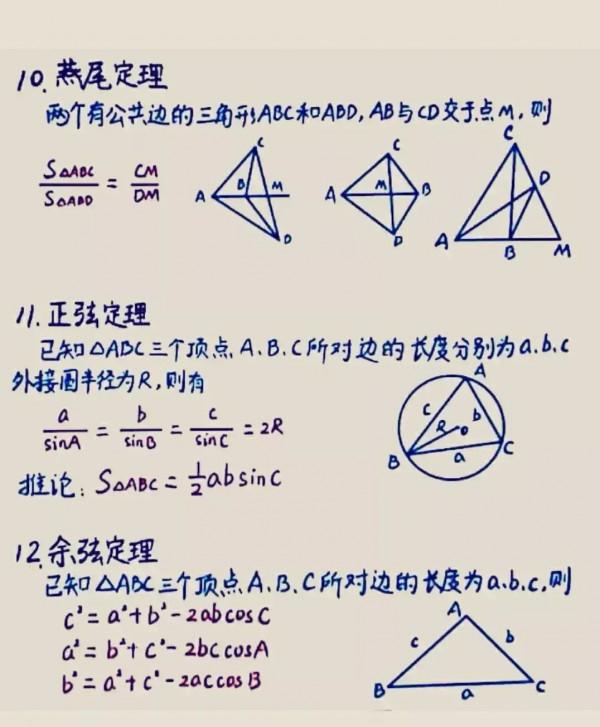 10. 燕尾定理
两个有公共边的三角形ABC和ABD, AB与CD交于点M, 则
S△ABC/S△ABD = CM/DM
C
A B M
D
C
A M B
D
C
D
A B M
11. 正弦定理
已知△ABC三个顶点A. B. C所对边的长度分别为a.b.c
外接圆半径为R, 则有
a/sinA = b/sinB = c/sinC = 2R
A
c b
R o
B a C
推论: S△ABC = ½absinC
12. 余弦定理
已知△ABC三个顶点A. B. C所对边的长度为a.b.c, 则
c² = a² + b² - 2abcosC
a² = b² + c² - 2bccosA
b² = a² + c² - 2accosB
A
c b
B a C